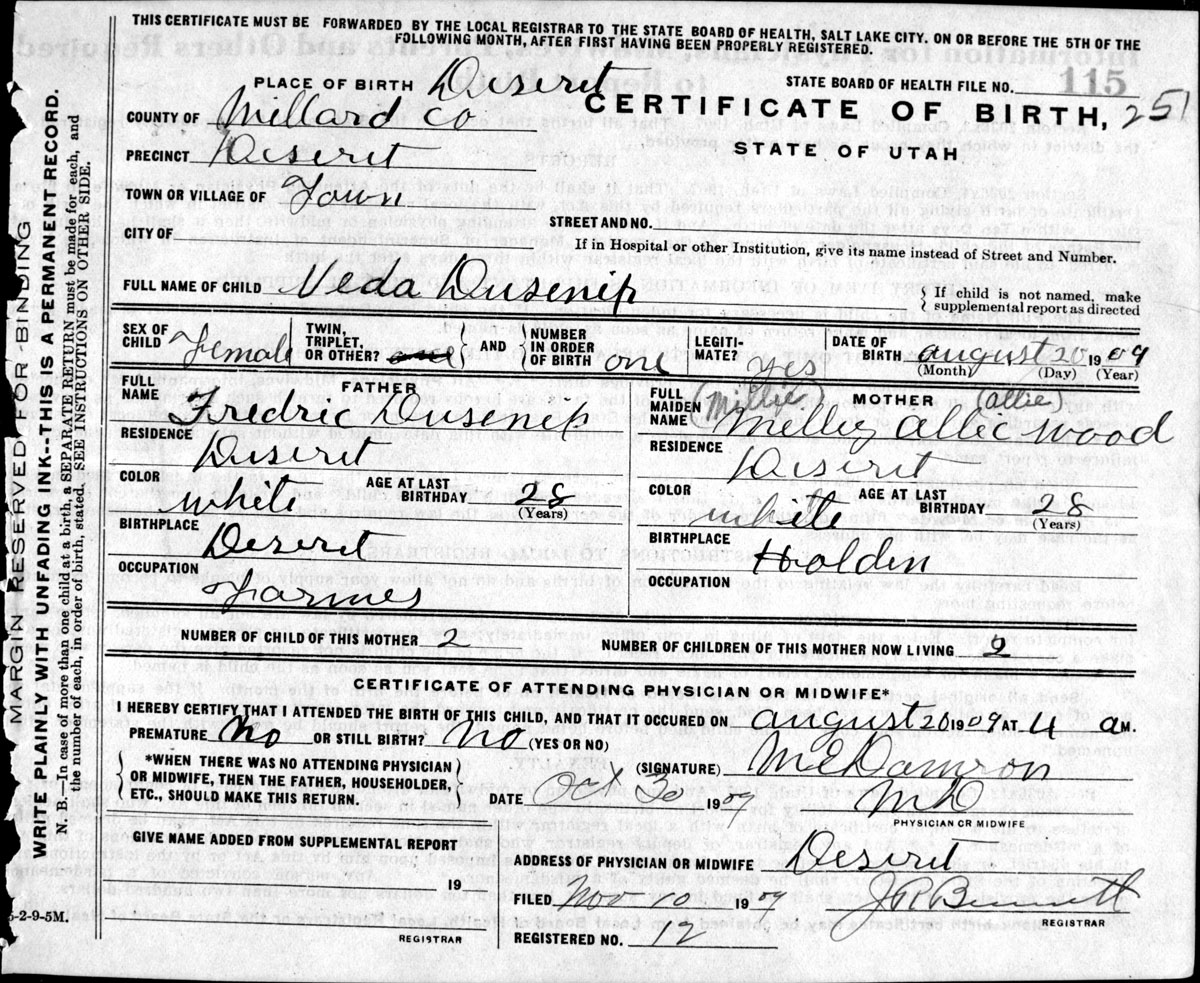 THIS CERTIFICATE MUST BE FORWARDED BY THE LOCAL REGISTRAR TO THE STATE BOARD OF HEALTH, SALT LAKE CITY, ON OR BEFORE THE 5TH OF THE
FOLLOWING MONTH, AFTER FIRST HAVING BEEN PROPERLY REGISTERED.
PLACE OF BIRTH Duserit
STATE BOARD OF HEALTH FILE NO. 115
CERTIFICATE OF BIRTH, 251
STATE OF UTAH
COUNTY OF Millard Co
PRECINCT Deserit
TOWN OR VILLAGE OF Town
CITY OF
STREET AND NO.
If in Hospital or other Institution, give its name instead of Street and Number.
FULL NAME OF CHILD Veda Dusenip
{ If child is not named, make
supplemental report as directed
SEX OF CHILD Female
TWIN, TRIPLET, OR OTHER?
{ AND } NUMBER IN ORDER OF BIRTH one
LEGITIMATE? yes
DATE OF BIRTH august 20 1909
(Month) (Day) (Year)
FATHER
FULL NAME Fredric Dusenip
RESIDENCE Duserit
COLOR white AGE AT LAST BIRTHDAY 28
(Years)
BIRTHPLACE Deserit
OCCUPATION Farmer
MOTHER
(Millie) (allie)
FULL MAIDEN NAME Melley allie wood
RESIDENCE Deserit
COLOR white AGE AT LAST BIRTHDAY 28
(Years)
BIRTHPLACE Holden
OCCUPATION
NUMBER OF CHILD OF THIS MOTHER 2 NUMBER OF CHILDREN OF THIS MOTHER NOW LIVING 2
CERTIFICATE OF ATTENDING PHYSICIAN OR MIDWIFE*
I HEREBY CERTIFY THAT I ATTENDED THE BIRTH OF THIS CHILD, AND THAT IT OCCURED ON august 20 1909 AT 4 a M.
PREMATURE No OR STILL BIRTH? No (YES OR NO)
{ *WHEN THERE WAS NO ATTENDING PHYSICIAN
OR MIDWIFE, THEN THE FATHER, HOUSEHOLDER,
ETC., SHOULD MAKE THIS RETURN. }
(SIGNATURE) M E Damron
DATE Oct 30 1909 MD
PHYSICIAN OR MIDWIFE
GIVE NAME ADDED FROM SUPPLEMENTAL REPORT
19
REGISTRAR
ADDRESS OF PHYSICIAN OR MIDWIFE Deserit
FILED Nov 10 1909 J R Bennett
REGISTRAR
REGISTERED NO. 12
MARGIN RESERVED FOR BINDING
WRITE PLAINLY WITH UNFADING INK--THIS IS A PERMANENT RECORD.
N. B.—In case of more than one child at a birth, a SEPARATE RETURN must be made for each, and
the number of each, in order of birth, stated. SEE INSTRUCTIONS ON OTHER SIDE.
5-2-9-5M.